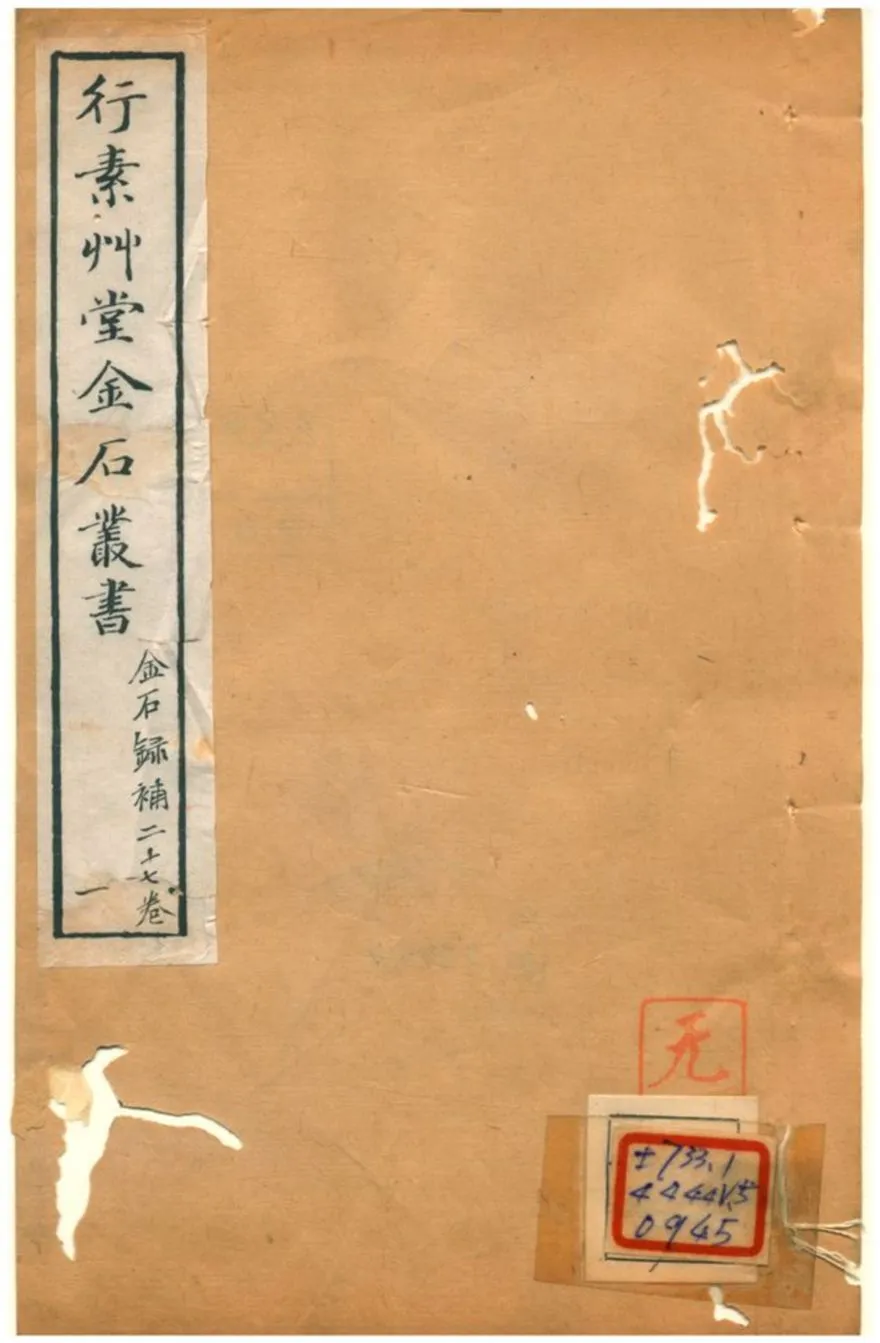 行素艸堂金石叢書
金石録補二十七卷
一
无
±733.1
4444V.5
0945